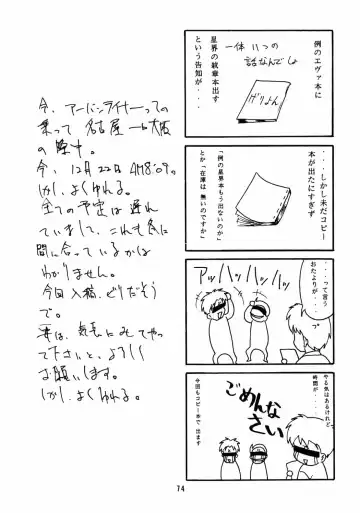 例のエヴァ本に
星界の紋章本出す
という告知が・・・
一体いつの
話なんでしょ
げりょん
・・・しかし未だコピー
本が出たにすぎず
「例の星界本
もう出ないのか」
とか「在庫は
無いのですか」
・・・って言う
おたよりが・・
アッハッハッハッハッ
やる気はあるけれど
時間が・・・
ごめんな
さい
今回もコピー本で
出ます
今、アーバンライナーっての
乗って 名古屋→大阪
の途中。
今、12月22日 AM8:09。
しかし、よくゆれる。
全ての予定は遅れ
ていまして、これも
間に合っているかは
わかりません。
今回入稿、どりだそう
で。
は、気長にみてやっ
て下さいと、よろしく
お願いします。
しかし、よくゆれる。
74